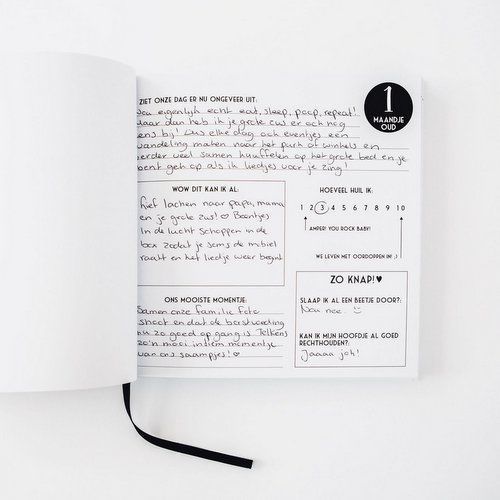 ZIET ONZE DAG ER NU ONGEVEER UIT:
eigenlijk echt eat, sleep, poop, repeat!
dan heb ik je grote zus er ook nog
bij! Dus elke dag ook eventjes een
wandeling maken naar het park of winkels en
verder veel samen knuffelen op het grote bed en je
bent gek op als ik liedjes voor je zing!
1
MAANDJE
OUD
WOW DIT KAN IK AL:
Lief lachen naar papa, mama
en je grote zus! ♡ Beentjes
in de lucht schoppen in de
box zodat je soms de mobiel
raakt en het liedje weer begint
HOEVEEL HUIL IK:
1 2 3 4 5 6 7 8 9 10
AMPER! YOU ROCK BABY!
WE LEVEN MET OORDOPPEN IN! ;)
ONS MOOISTE MOMENTJE:
Samen onze familie foto
shoot en dat de borstvoeding
nu zo goed op gang is. Telkens
zo'n mooi intiem momentje
van ons saampjes! ♡
ZO KNAP! ♥
SLAAP IK AL EEN BEETJE DOOR?:
Nou nee. ☺
KAN IK MIJN HOOFDJE AL GOED
RECHTHOUDEN?:
Jaaaa joh!